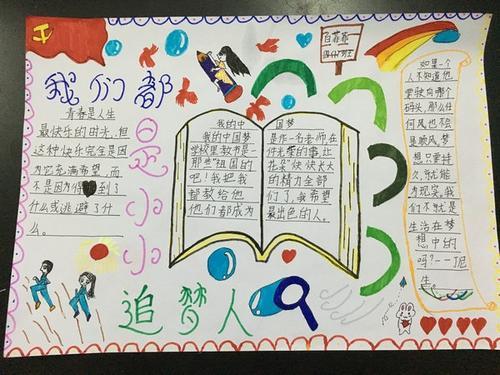 我们都是小小
追梦人
青春是人生
最快乐的时光,但
这种快乐完全是因
为它充满希望,而
不是因为得到了
什么或逃避了什
么。
我的中国梦
我的中国梦
学校里教书是一
那些"祖国的
吧!我把我
都教给他
他们都成为
是作一名老师在
件光荣的事,让
花朵"快快长大
的精力全部
们了,我希望
最出色的人。
如果一个
人不知道他
要驶向哪个
码头,那么任
何风也不会
是顺风。梦
想只要持
久,就能
成为现实。我
们不就是
生活在梦
想中的
吗?——丁尼
生